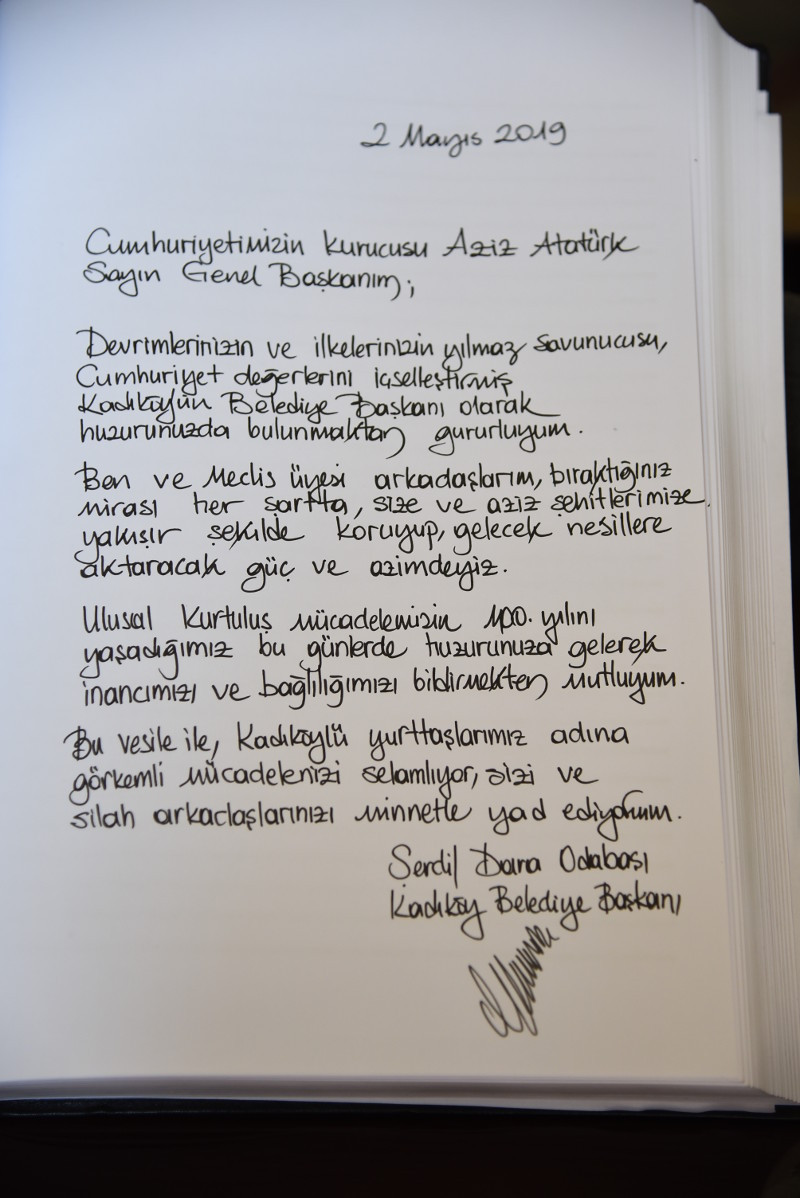 2 Mayıs 2019
Cumhuriyetimizin kurucusu Aziz Atatürk
Sayın Genel Başkanım;
Devrimlerinizin ve ilkelerinizin yılmaz savunucusu,
Cumhuriyet değerlerini içselleştirmiş
Kadıköyün Belediye Başkanı olarak
huzurunuzda bulunmaktan gururluyum.
Ben ve Meclis üyesi arkadaşlarım, bıraktığınız
mirası her şartta, size ve aziz şehitlerimize
yakışır şekilde koruyup, gelecek nesillere
aktaracak güç ve azimdeyiz.
Ulusal Kurtuluş mücadelemizin 100. yılını
yaşadığımız bu günlerde huzurunuza gelerek
inancımızı ve bağlılığımızı bildirmekten mutluyum.
Bu vesile ile, Kadıköylü yurttaşlarımız adına
görkemli mücadelenizi selamlıyor, sizi ve
silah arkadaşlarınızı minnetle yad ediyorum.
Serdil Dara Odabaşı
Kadıköy Belediye Başkanı